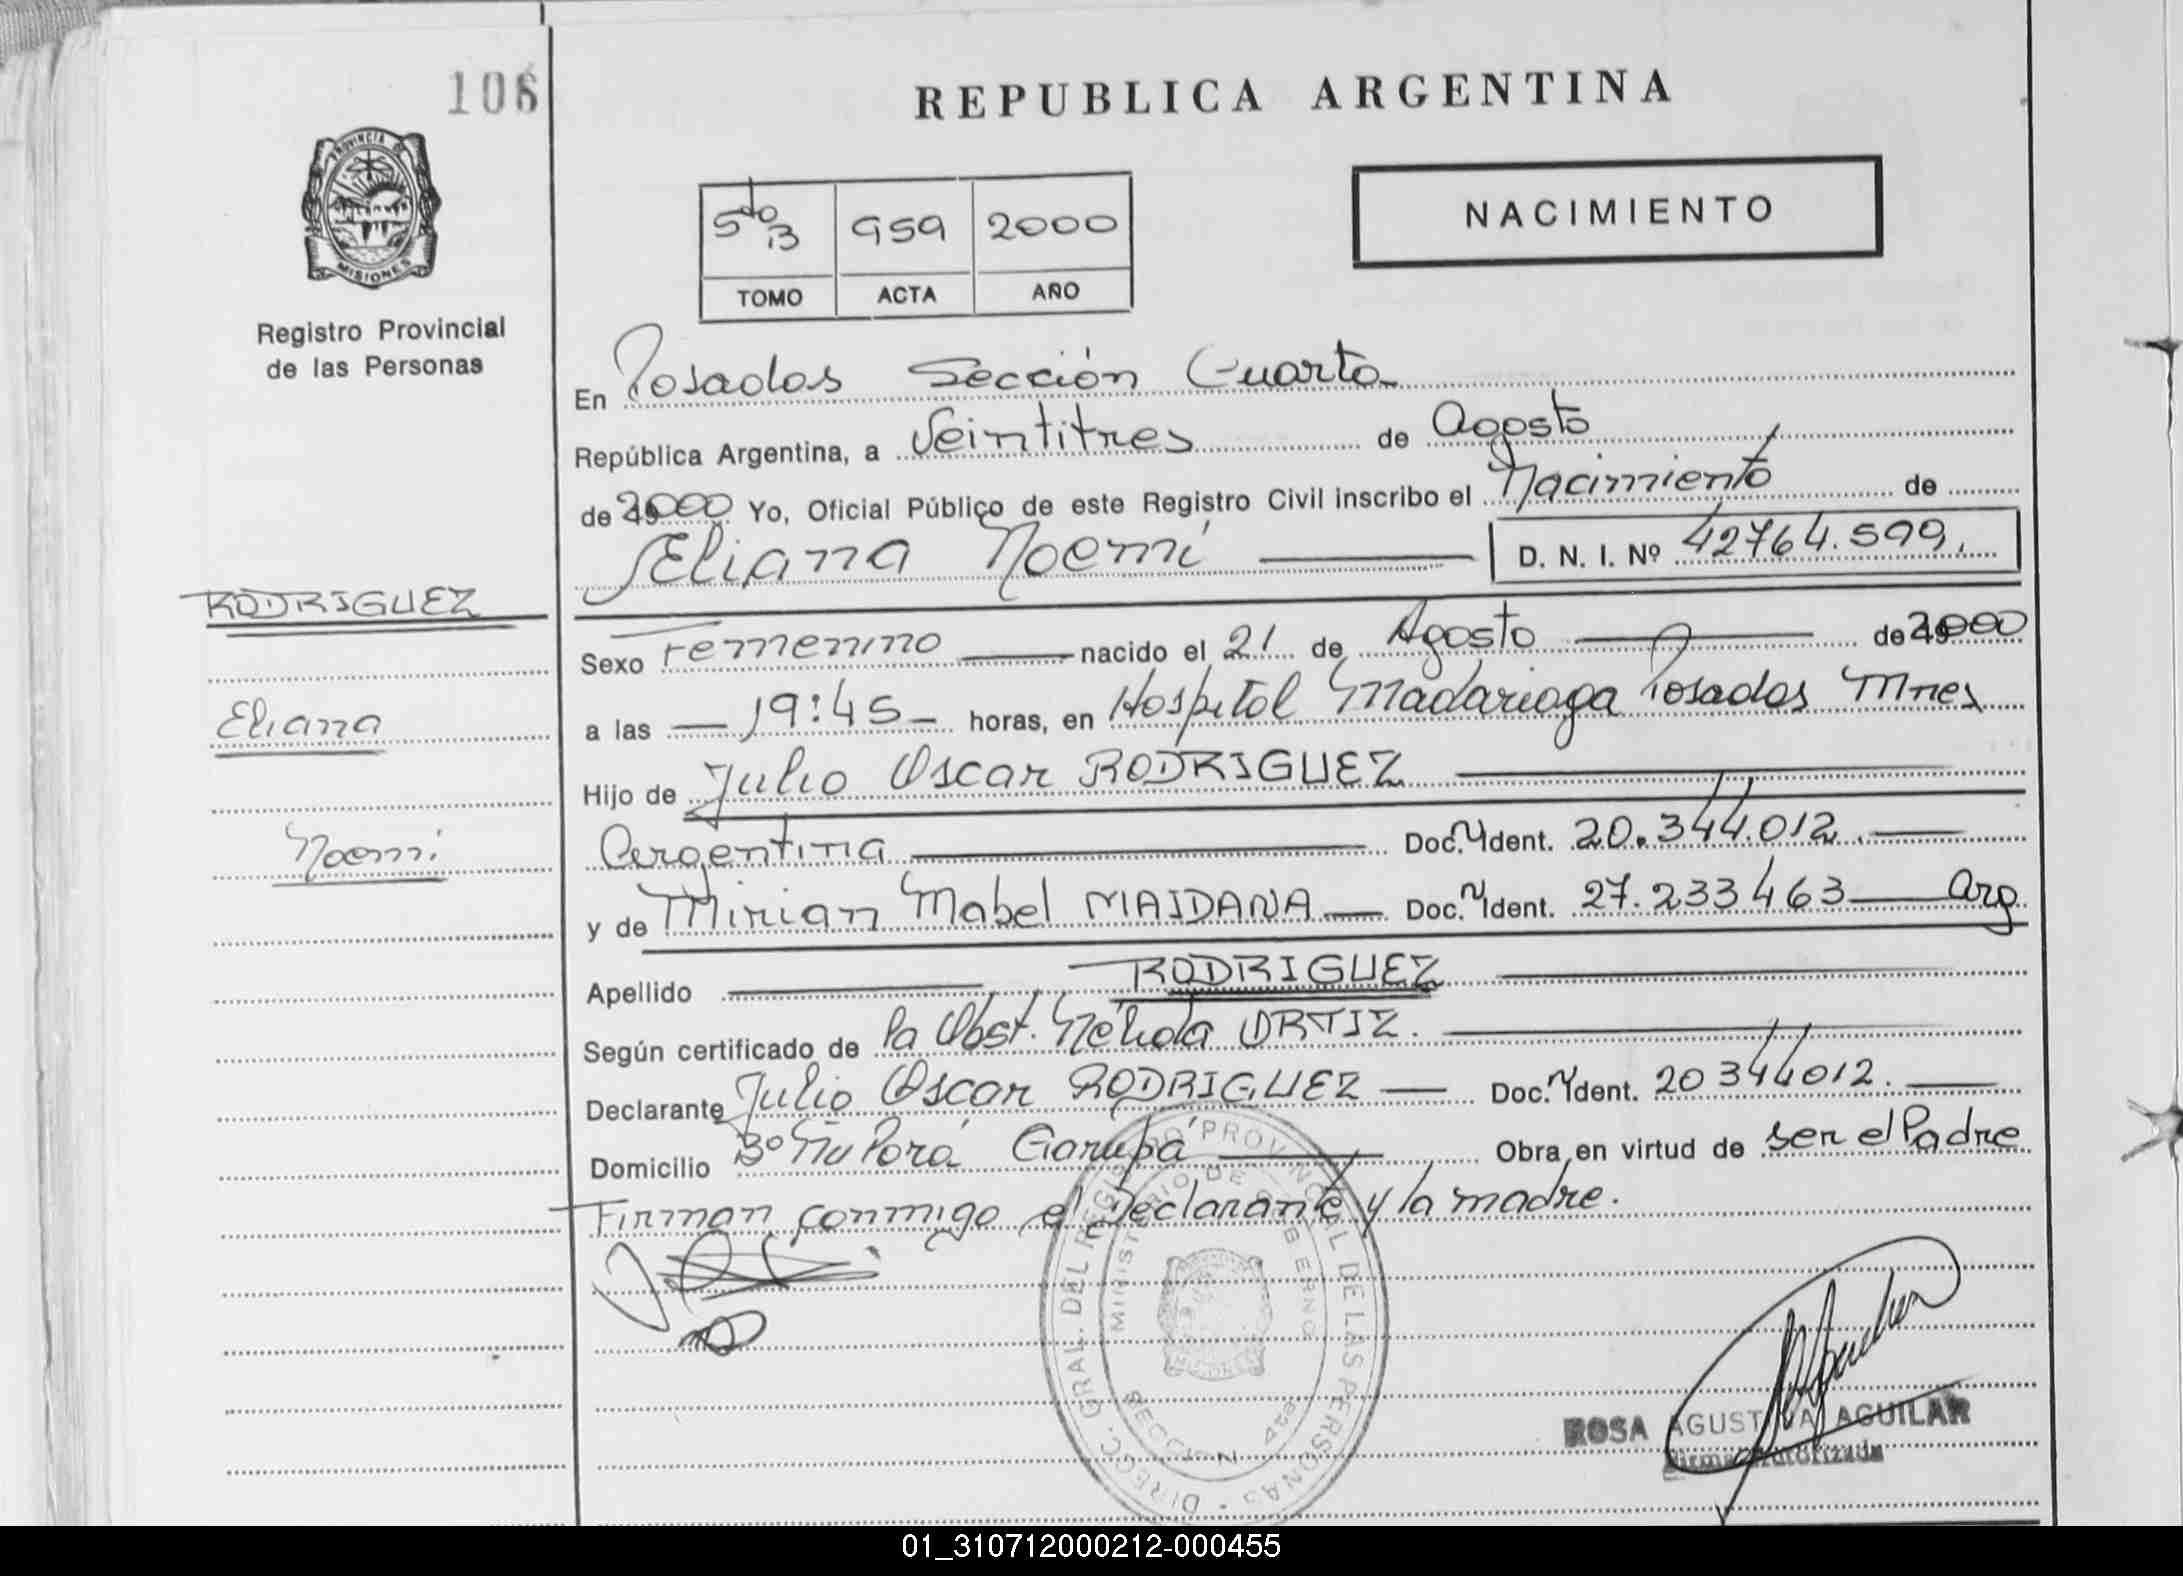 108
REPUBLICA ARGENTINA
PROVINCIA DE
MISIONES
Registro Provincial
de las Personas
NACIMIENTO
5to B 959 2000
TOMO ACTA AÑO
En Posadas Sección Cuarta
República Argentina, a Veintitres de Agosto
de 2000 Yo, Oficial Público de este Registro Civil inscribo el Nacimiento de
Eliana Noemí D. N. I. Nº 42764.599
RODRIGUEZ
Eliana
Noemí
Sexo Femenino nacido el 21 de Agosto de 2000
a las 19:45 horas, en Hospital Madariaga Posadas Mnes
Hijo de Julio Oscar RODRIGUEZ
Argentina Doc. Ident. 20.344.012
y de Mirian Mabel MAIDANA Doc. Ident. 27.233463 Arg
Apellido RODRIGUEZ
Según certificado de la Obst. Nélida ORTIZ.
Declarante Julio Oscar RODRIGUEZ Doc. Ident. 20344012.
Domicilio Bº Ñu Porá Garupá Obra en virtud de ser el Padre
Firman conmigo el Declarante y la madre.
DIRECC. GRAL. DEL REGISTRO PROVINCIAL DE LAS PERSONAS
MINISTERIO DE GOBIERNO
SECCION 4ta
ROSA AGUSTINA AGUILAR
Firma Autorizada
01_310712000212-000455